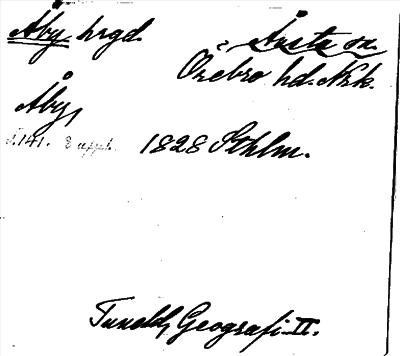 Åby, hrgd.
Ånsta sn.
Örebro hd. Nrk.
Åby,
s. 141. 8 uppl. 1828 Sthlm.
Tuneld, Geografi II.